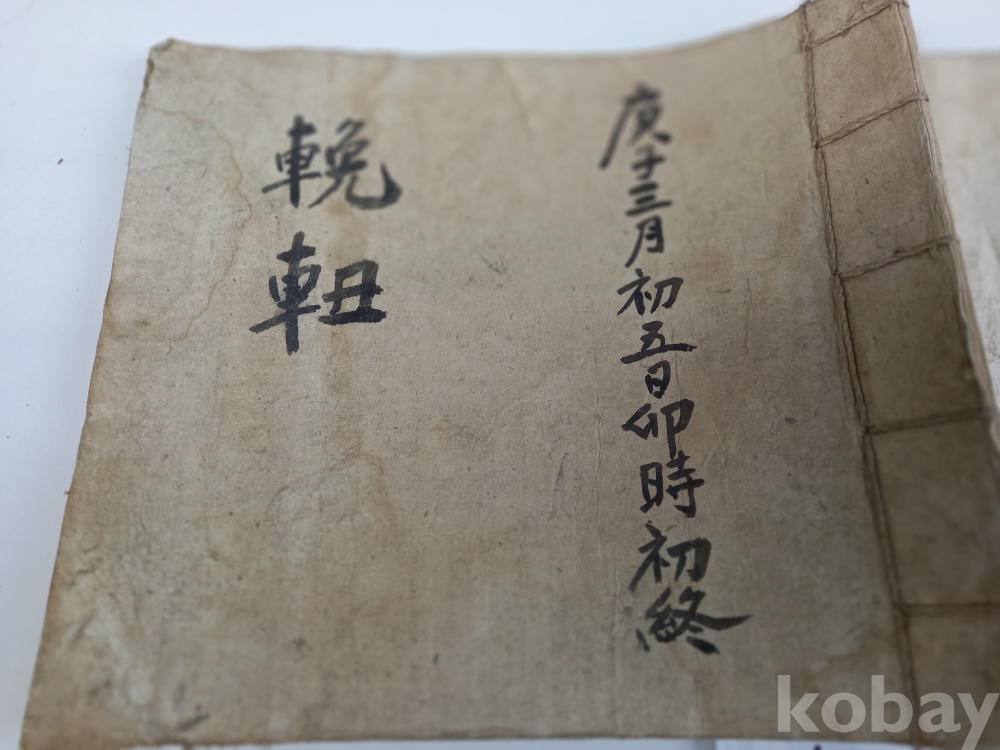 庚子三月初五日卯時初終
輓軸
kobay